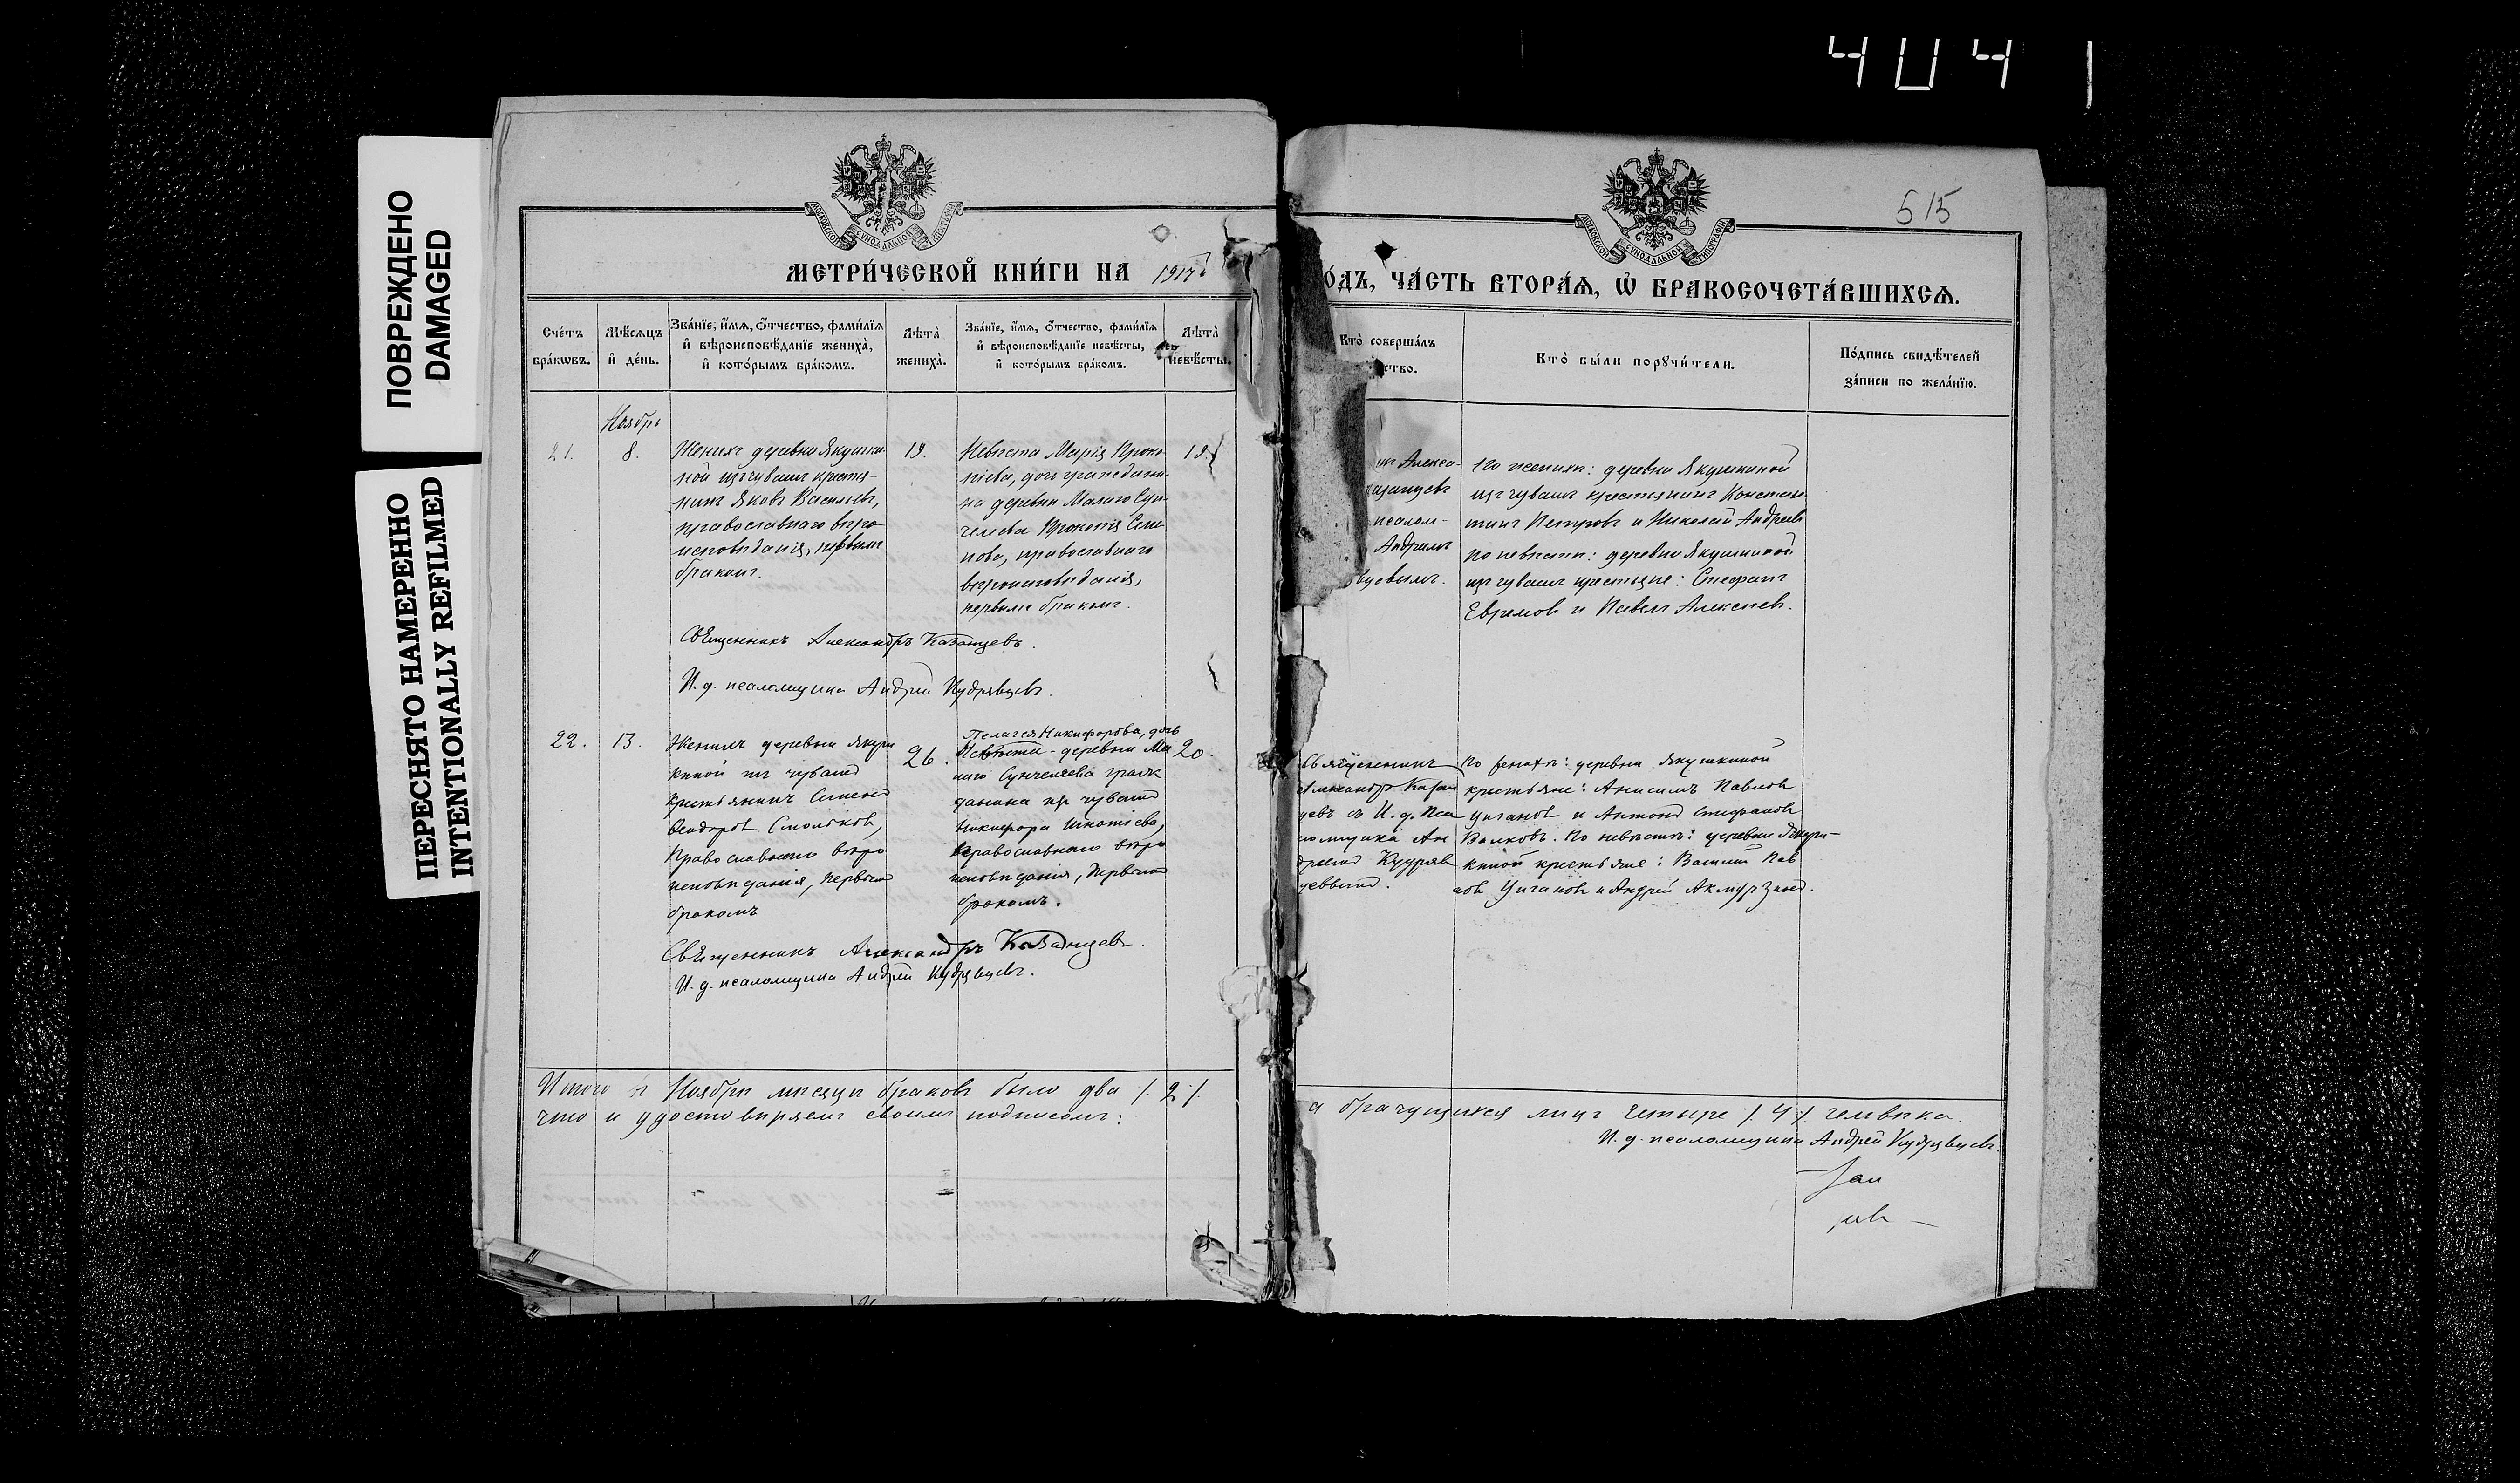 404
ПОВРЕЖДЕНО
DAMAGED
ПЕРЕСНЯТО НАМЕРЕННО
INTENTIONALLY REFILMED
515
МОСКОВСКОЙ СѴНОДАЛЬНОЙ ТИПОГРАФІИ
МОСКОВСКОЙ СѴНОДАЛЬНОЙ ТИПОГРАФІИ
МЕТРИ́ЧЕСКОЙ КНИ́ГИ НА 1917
О́ДЪ, ЧА́СТЬ ВТОРА́Ѧ, Ѡ҆ БРАКОСОЧЕТА́ВШИХСѦ.
Сче́тъ бра́кѡвъ.
Мѣ́сѧцъ и҆ де́нь.
Зва́нїе, и҆́мѧ, ѻ҆́тчество, фами́лїѧ
и҆ вѣроисповѣ́данїе жениха̀,
и҆ кото́рымъ бра́комъ.
Лѣта̀ жениха̀.
Зва́нїе, и҆́мѧ, ѻ҆́тчество, фами́лїѧ
и҆ вѣроисповѣ́данїе невѣ́сты,
и҆ кото́рымъ бра́комъ.
Лѣта̀ невѣ́сты.
Кто̀ соверша́лъ
ство.
Кто̀ бы́ли порꙋчи́тели.
По́дпись свидѣ́телей
за́писи по жела́нїю.
Ноябрь
21.
8.
Женихъ деревни Якушки-
ной изъ чувашъ крестья-
нинъ Яковъ Васильевъ,
православнаго вѣро-
исповѣданія, первымъ
бракомъ.
19.
Невѣста Марія Проко-
піева, дочь граждани-
на деревни Малаго Сун-
челеева Прокопія Семе-
нова, православнаго
вѣроисповѣданія,
первымъ бракомъ.
19.
Алекса-
казанцевъ
псалом-
Андреемъ
вцевымъ.
По женихѣ: деревни Якушкиной
изъ чувашъ крестьянинъ Констан-
тинъ Петровъ и Николай Андреевъ
По невѣстѣ: деревни Якушкиной
изъ чувашъ крестьяне: Стефанъ
Евремовъ и Павелъ Алексеевъ.
Священникъ Александръ Казанцевъ.
И. д. псаломщика Андрей Кудрявцевъ.
22.
13.
Женихъ деревни Якуш
киной изъ чувашъ
крестьянинъ Семенъ
Ѳеодоровъ Смольковъ,
Православнаго вѣро
исповѣданія, первымъ
бракомъ
26.
Пелагея Никифорова, дочь
Невѣста - деревни Ма
лаго Сунчелеева граж
данина изъ чувашъ
Никифора Игнатіева,
Православнаго вѣро
исповѣданія, первымъ
бракомъ.
20.
Священникъ
Александръ Казан
цевъ съ И. д. Пса
ломщика Ан
дреемъ Кудряв
цевымъ.
По женихѣ: деревни Якушкиной
крестьяне: Анисимъ Павловъ
Цыгановъ и Антонъ Стефановъ
Волковъ. По невѣстѣ: деревни Якуш-
киной крестьяне: Василій Пав
ловъ Цыгановъ и Андрей Акмурзинъ.
Священникъ Александръ Казанцевъ.
И. д. псаломщика Андрей Кудрявцевъ.
Итого въ Ноябрѣ мѣсяцѣ браковъ было два /.2/.
а брачущихся лицъ четыре /.4/. человѣка.
что и удостовѣряемъ своимъ подписомъ:
И. д. псаломщика Андрей Кудрявцевъ.